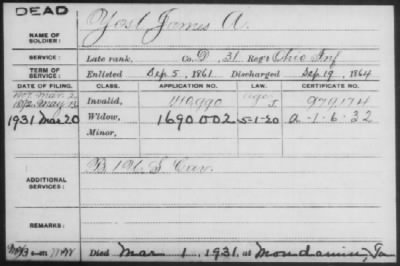 DEAD
NAME OF SOLDIER: Yost James A.
SERVICE: Late rank, Co. D, 31 Reg't Ohio Inf
TERM OF SERVICE: Enlisted Sep. 5, 1861 Discharged Sep. 19, 1864
DATE OF FILING. CLASS. APPLICATION NO. LAW. CERTIFICATE NO.
1892 May 13 Invalid, J
1931 Mar 20 Widow, 1690002 5-1-20 a-1-6-32
Minor,
ADDITIONAL SERVICES: B U.S. Cav.
REMARKS:
Died Mar 1, 1931, at Mondamin, Ia